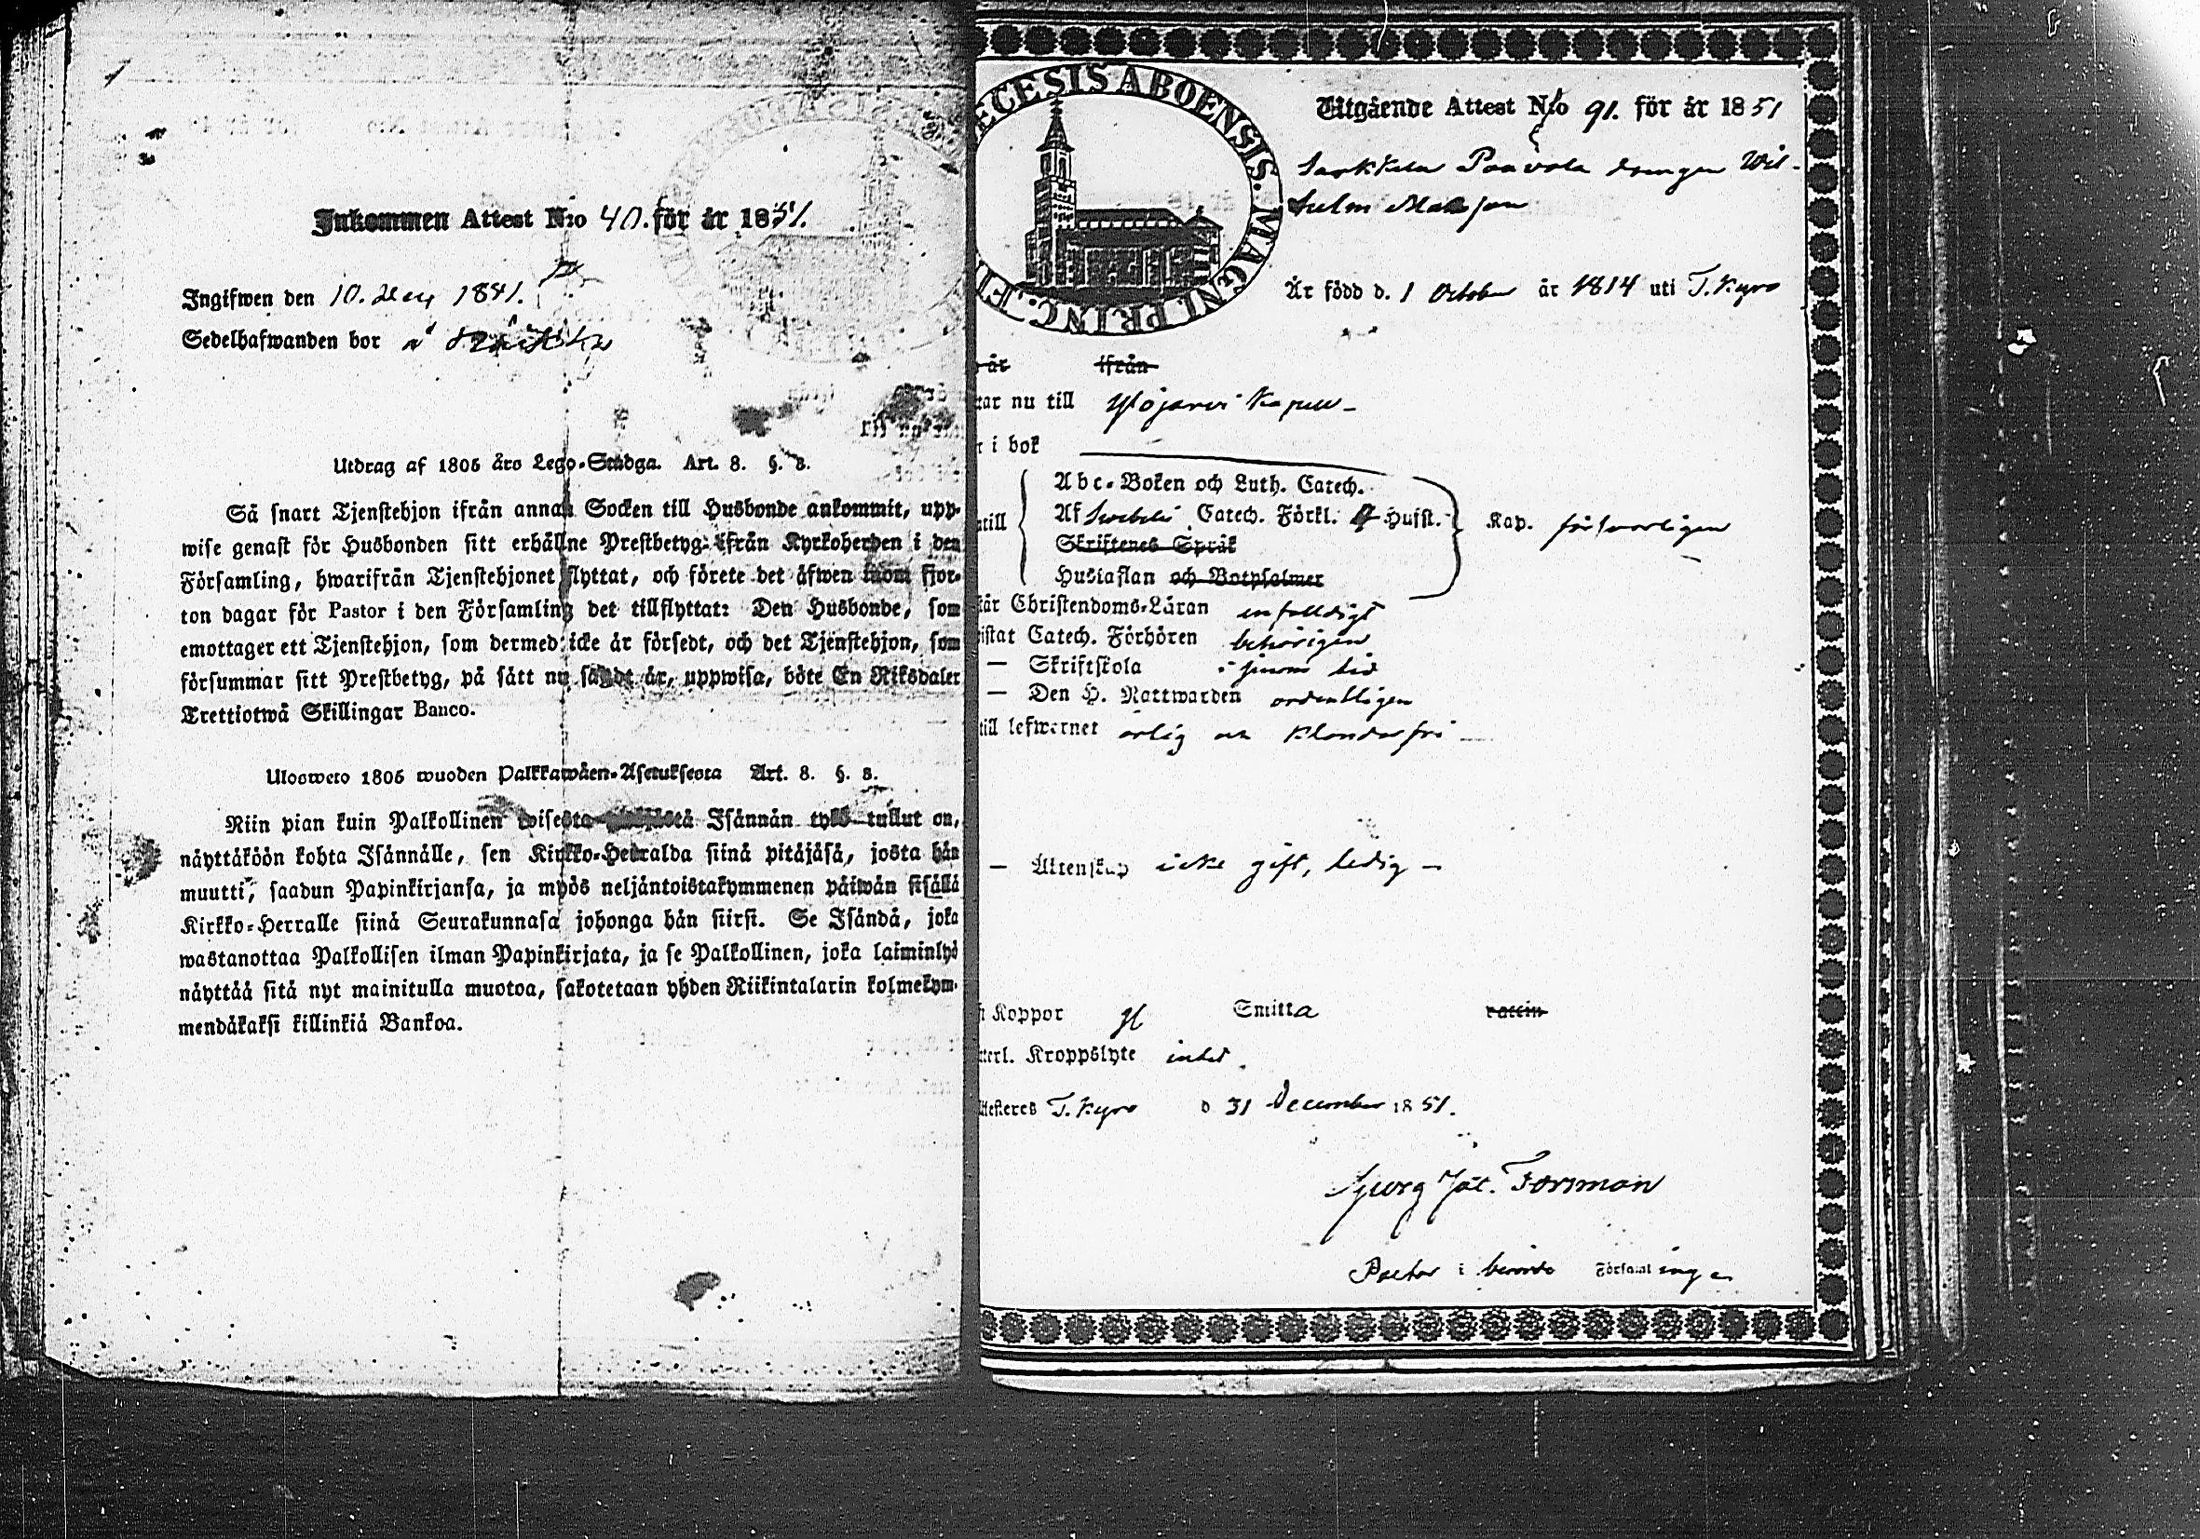 Inkommen Attest N:o 40. för år 1851.
Ingifwen den 10. 1851.
Sedelhafwanden bor å
Utdrag af 1805 års Lego-Stadga. Art. 8. §. 8.
Så snart Tjenstehjon ifrån annan Socken till Husbonde ankommit, upp-
wise genast för Husbonden sitt erhållne Prestbetyg ifrån Kyrkoherden i den
Församling, hwarifrån Tjenstehjonet flyttat, och förete det äfwen inom fjor-
ton dagar för Pastor i den Församling det tillflyttat: Den Husbonde, som
emottager ett Tjenstehjon, som dermed icke är försedt, och det Tjenstehjon, som
försummar sitt Prestbetyg, på sätt nu sagdt är, uppwisa, böte En Riksdaler
Trettiotwå Skillingar Banco.
Ulosweto 1805 wuoden Palkkawäen-Asetuksesta Art. 8. §. 8.
Niin pian kuin Palkollinen toisesta Isännän työ tullut on,
näyttäköön kohta Isännälle, sen Kirkko-Herralda siinä pitäjäsä, josta hän
muutti, saadun Papinkirjansa, ja myös neljäntoistakymmenen päiwän sisällä
Kirkko-Herralle siinä Seurakunnasa johonga hän siirsi. Se Isändä, joka
wastanottaa Palkollisen ilman Papinkirjata, ja se Palkollinen, joka laiminlyö
näyttää sitä nyt mainitulla muotoa, sakotetaan yhden Riikintalarin kolmekym-
mendäkaksi killinkiä Bankoa.
ECESIS ABOENSIS. MAGNI PRINC. FI
Utgående Attest N:o 91. för år 1851
Sarkkila Paavola drengen Wil-
helm Matsson
Är född d. 1 October år 1814 uti T. Kyro
år ifrån
tar nu till Ylöjärvi Kapell
r i bok
Abc-Boken och Luth. Catech.
till Af Swebelii Catech. Förkl. Husst. Kap. försvarligen
Skriftenes Språk
Hustaflan och Botpsalmer
tår Christendoms-Läran enfaldigt
istat Catech. Förhören behörigen
— Skriftskola i sinom tid
— Den H. Nattwarden ordentligen
till lefwernet ärlig och klanderfri
— Äktenskap icke gift, ledig
Koppor Smitta
terl. Kroppslyte intet
Attesteres T. Kyro d 31 December 1851.
Georg Jac. Forsman
Pastor i berörde Församlingen